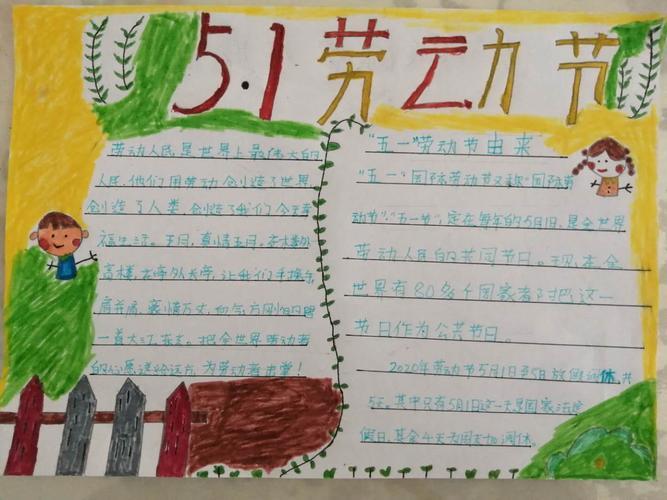 5.1 劳动节
劳动人民是世界上最伟大的
人民.他们用劳动创造了世界
创造了人类,创造了我们今天幸
福生活。五月,真情五月。在楼外
高楼,去海外长学,让我们手挽手
肩并肩,豪情万丈,
一首大江东去。把全世界劳动者
的心愿送给远方,为劳动者
“五一”劳动节由来
“五一”国际劳动节又称“国际劳
动节”.“五一节”,定在每年的5月1日.是全世界
劳动人民的共同节日。现在全
世界有80多个国家都把这一
节日作为公共节日。
2020年劳动节5月1日至5日放假调休,共
5天。其中只有5月1日这一天是国家法定
假日,其余4天为周末加调休。